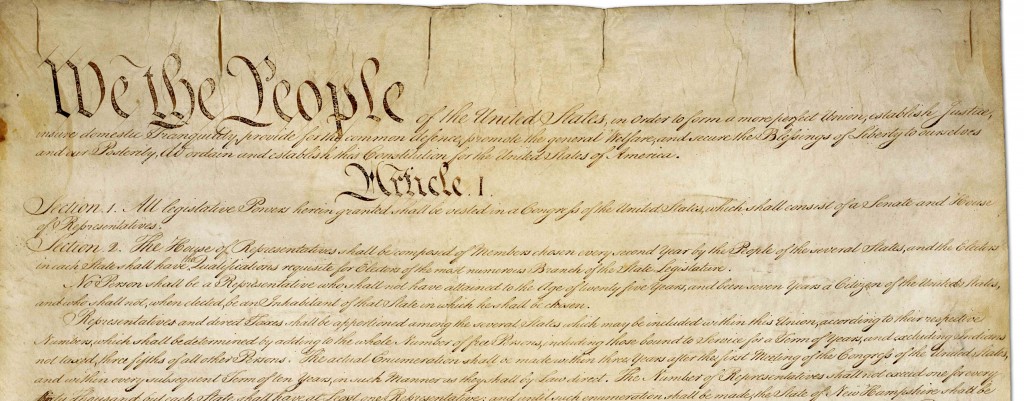 We the People of the United States, in order to form a more perfect Union, establish Justice,
insure domestic Tranquility, provide for the common defence, promote the general Welfare, and secure the Blessings of Liberty to ourselves
and our Posterity, do ordain and establish this Constitution for the United States of America.
Article. I.
Section. 1. All legislative Powers herein granted shall be vested in a Congress of the United States, which shall consist of a Senate and House
of Representatives.
Section. 2. The House of Representatives shall be composed of Members chosen every second Year by the People of the several States, and the Electors
in each State shall have the Qualifications requisite for Electors of the most numerous Branch of the State Legislature.
No Person shall be a Representative who shall not have attained to the Age of twenty five Years, and been seven Years a Citizen of the United States,
and who shall not, when elected, be an Inhabitant of that State in which he shall be chosen.
Representatives and direct Taxes shall be apportioned among the several States which may be included within this Union, according to their respective
Numbers, which shall be determined by adding to the whole Number of free Persons, including those bound to Service for a Term of Years, and excluding Indians
not taxed, three fifths of all other Persons. The actual Enumeration shall be made within three Years after the first Meeting of the Congress of the United States,
and within every subsequent Term of ten Years, in such Manner as they shall by Law direct. The Number of Representatives shall not exceed one for every
thirty Thousand, but each State shall have at Least one Representative; and until such enumeration shall be made, the State of New Hampshire shall be